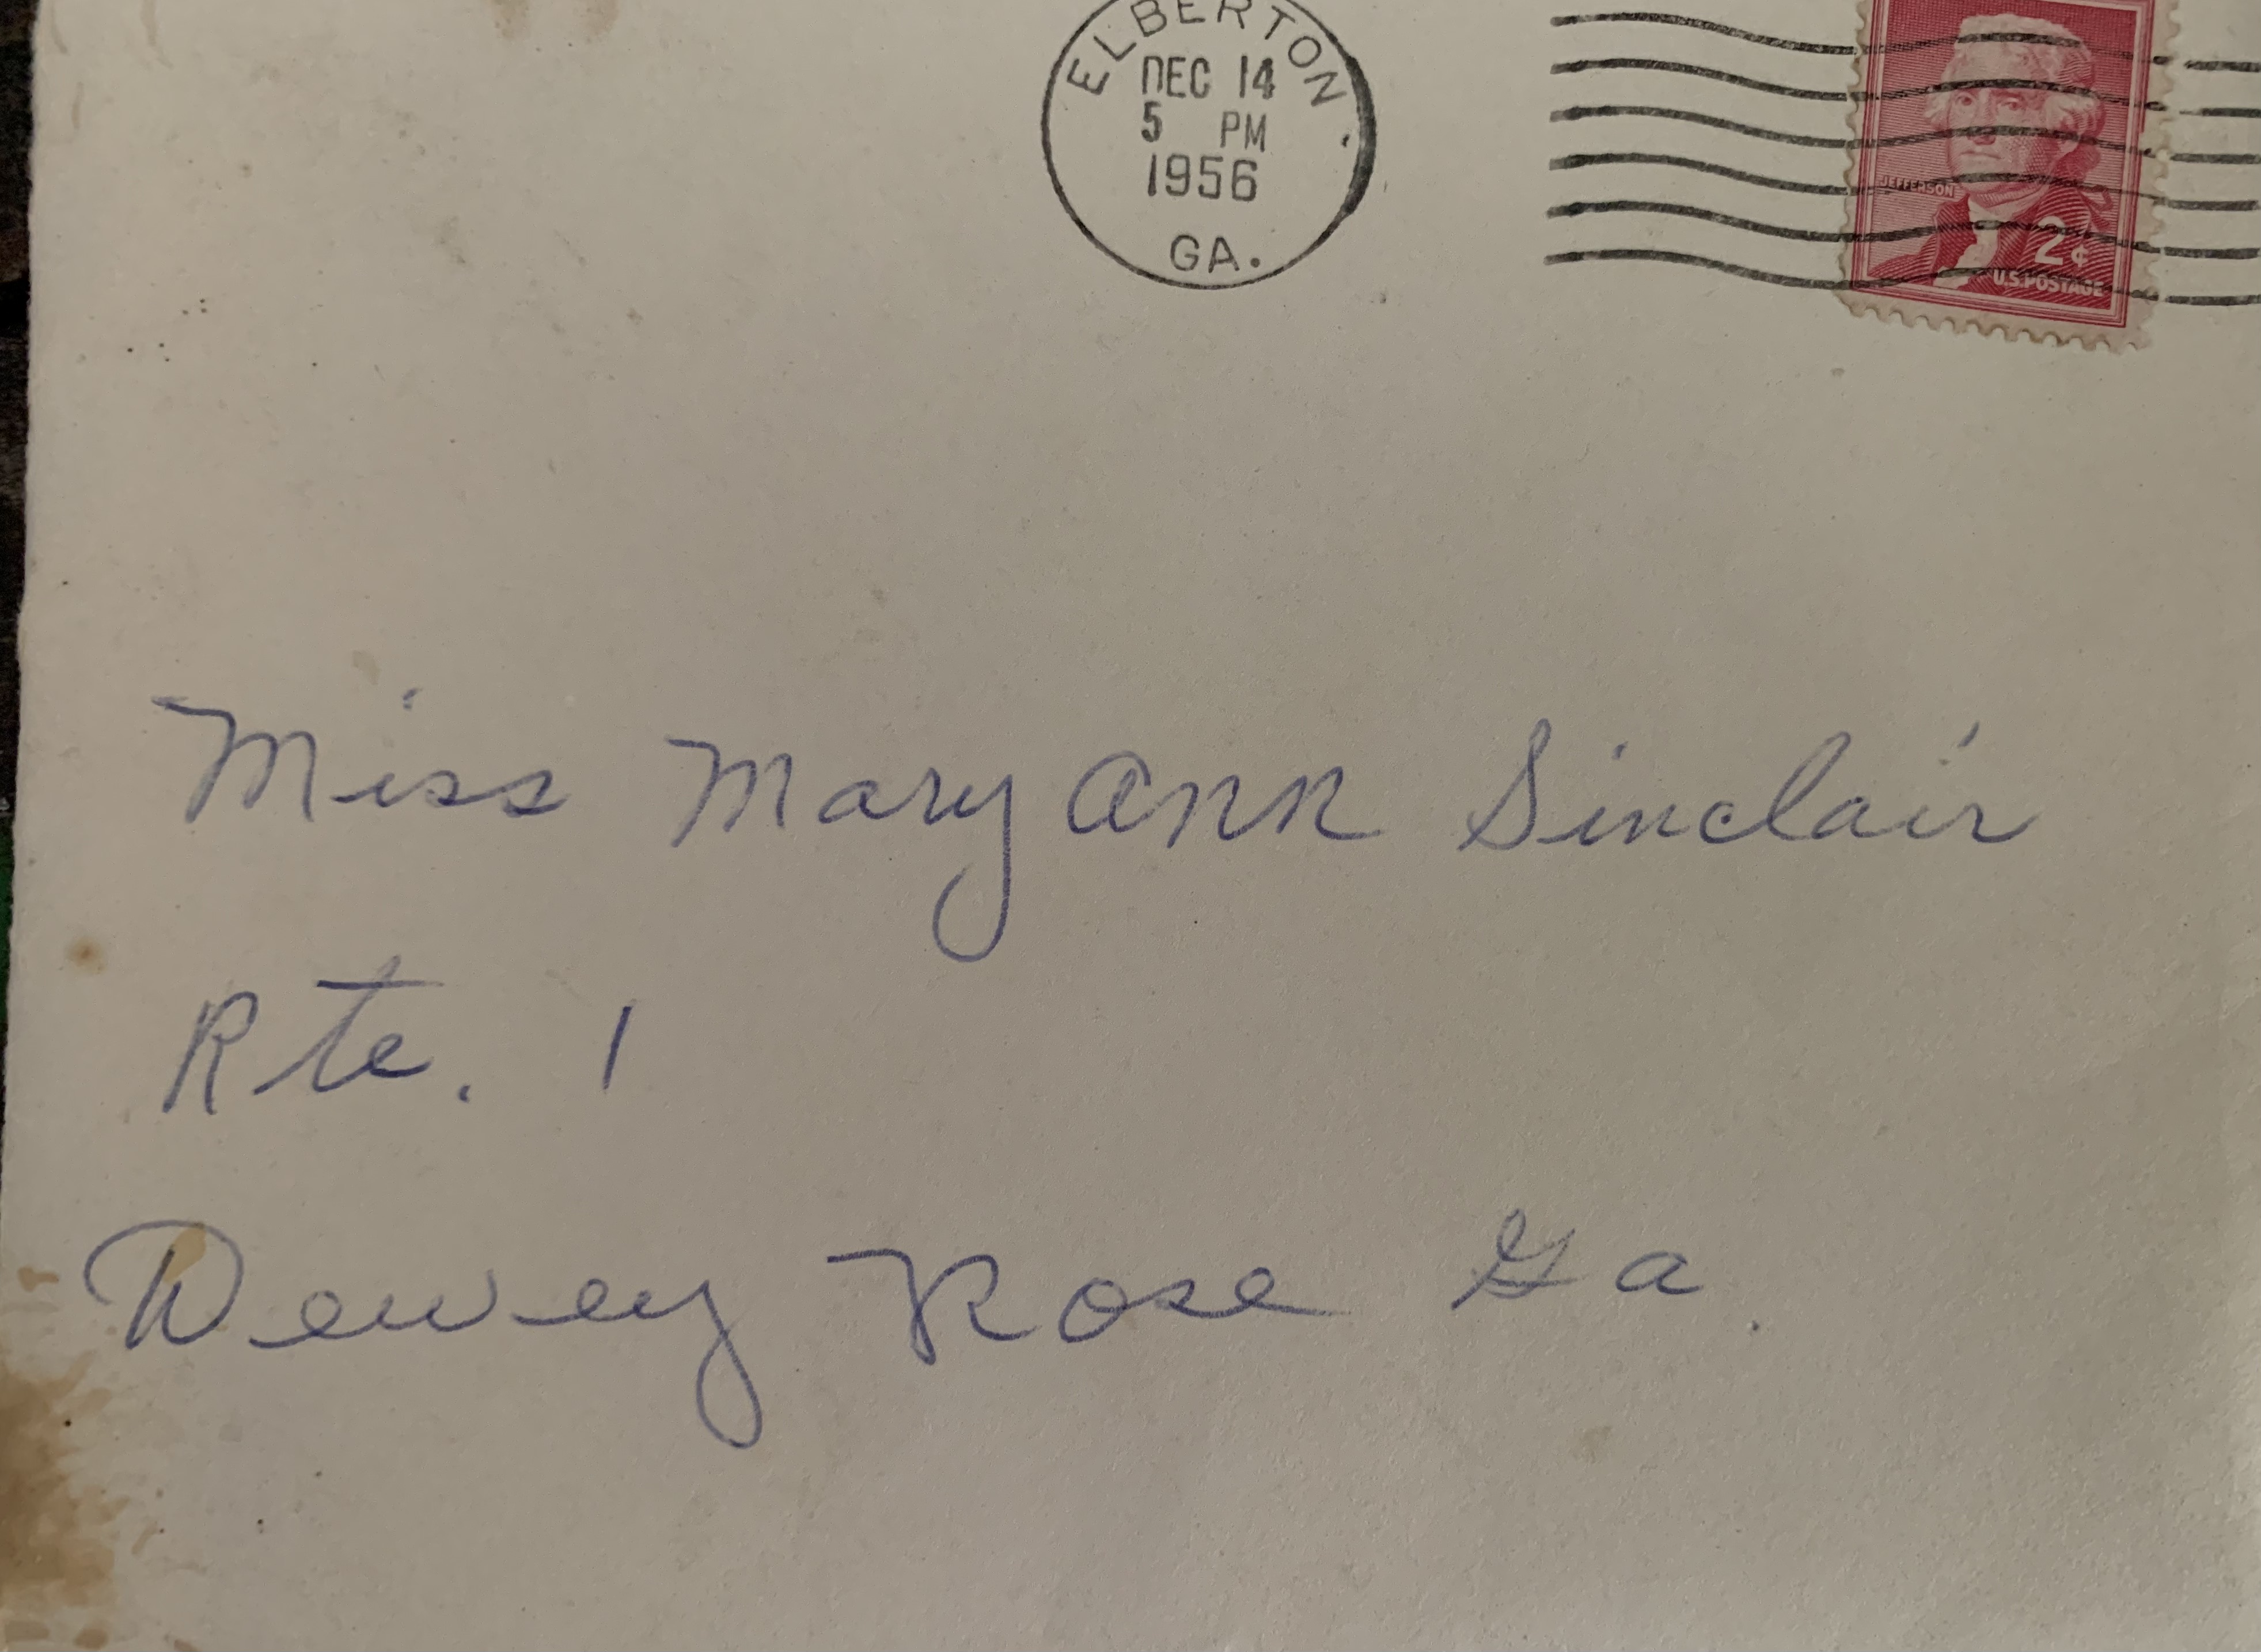 ELBERTON.
DEC 14
5 PM
1956
GA.
JEFFERSON
2¢
U.S. POSTAGE
Miss Mary Ann Sinclair
Rte. 1
Dewey Rose Ga.